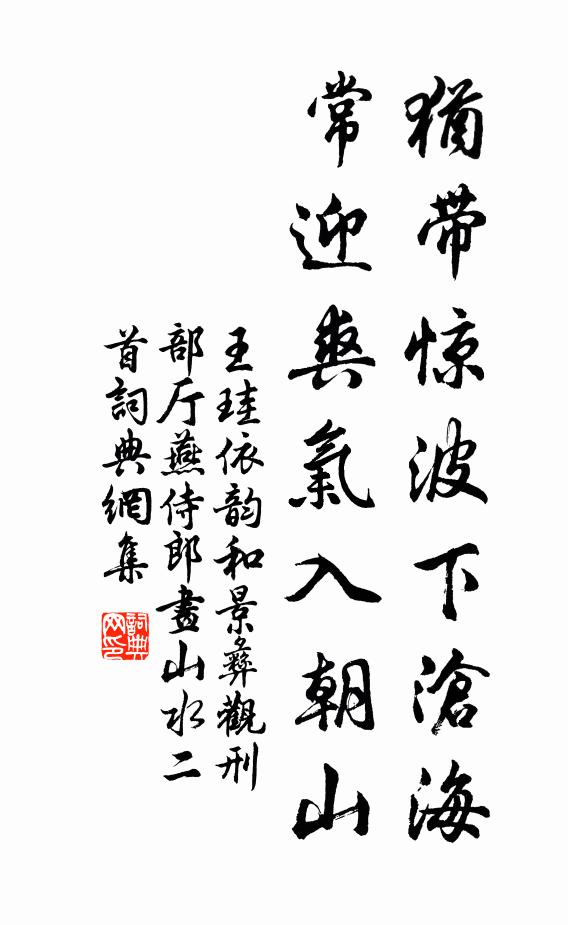 猶帶惊波下滄海
常迎爽氣入朝山
王珪依韵和景彝觀刑
部厅燕侍郎畫山水二
首詞典網集
詞典网印